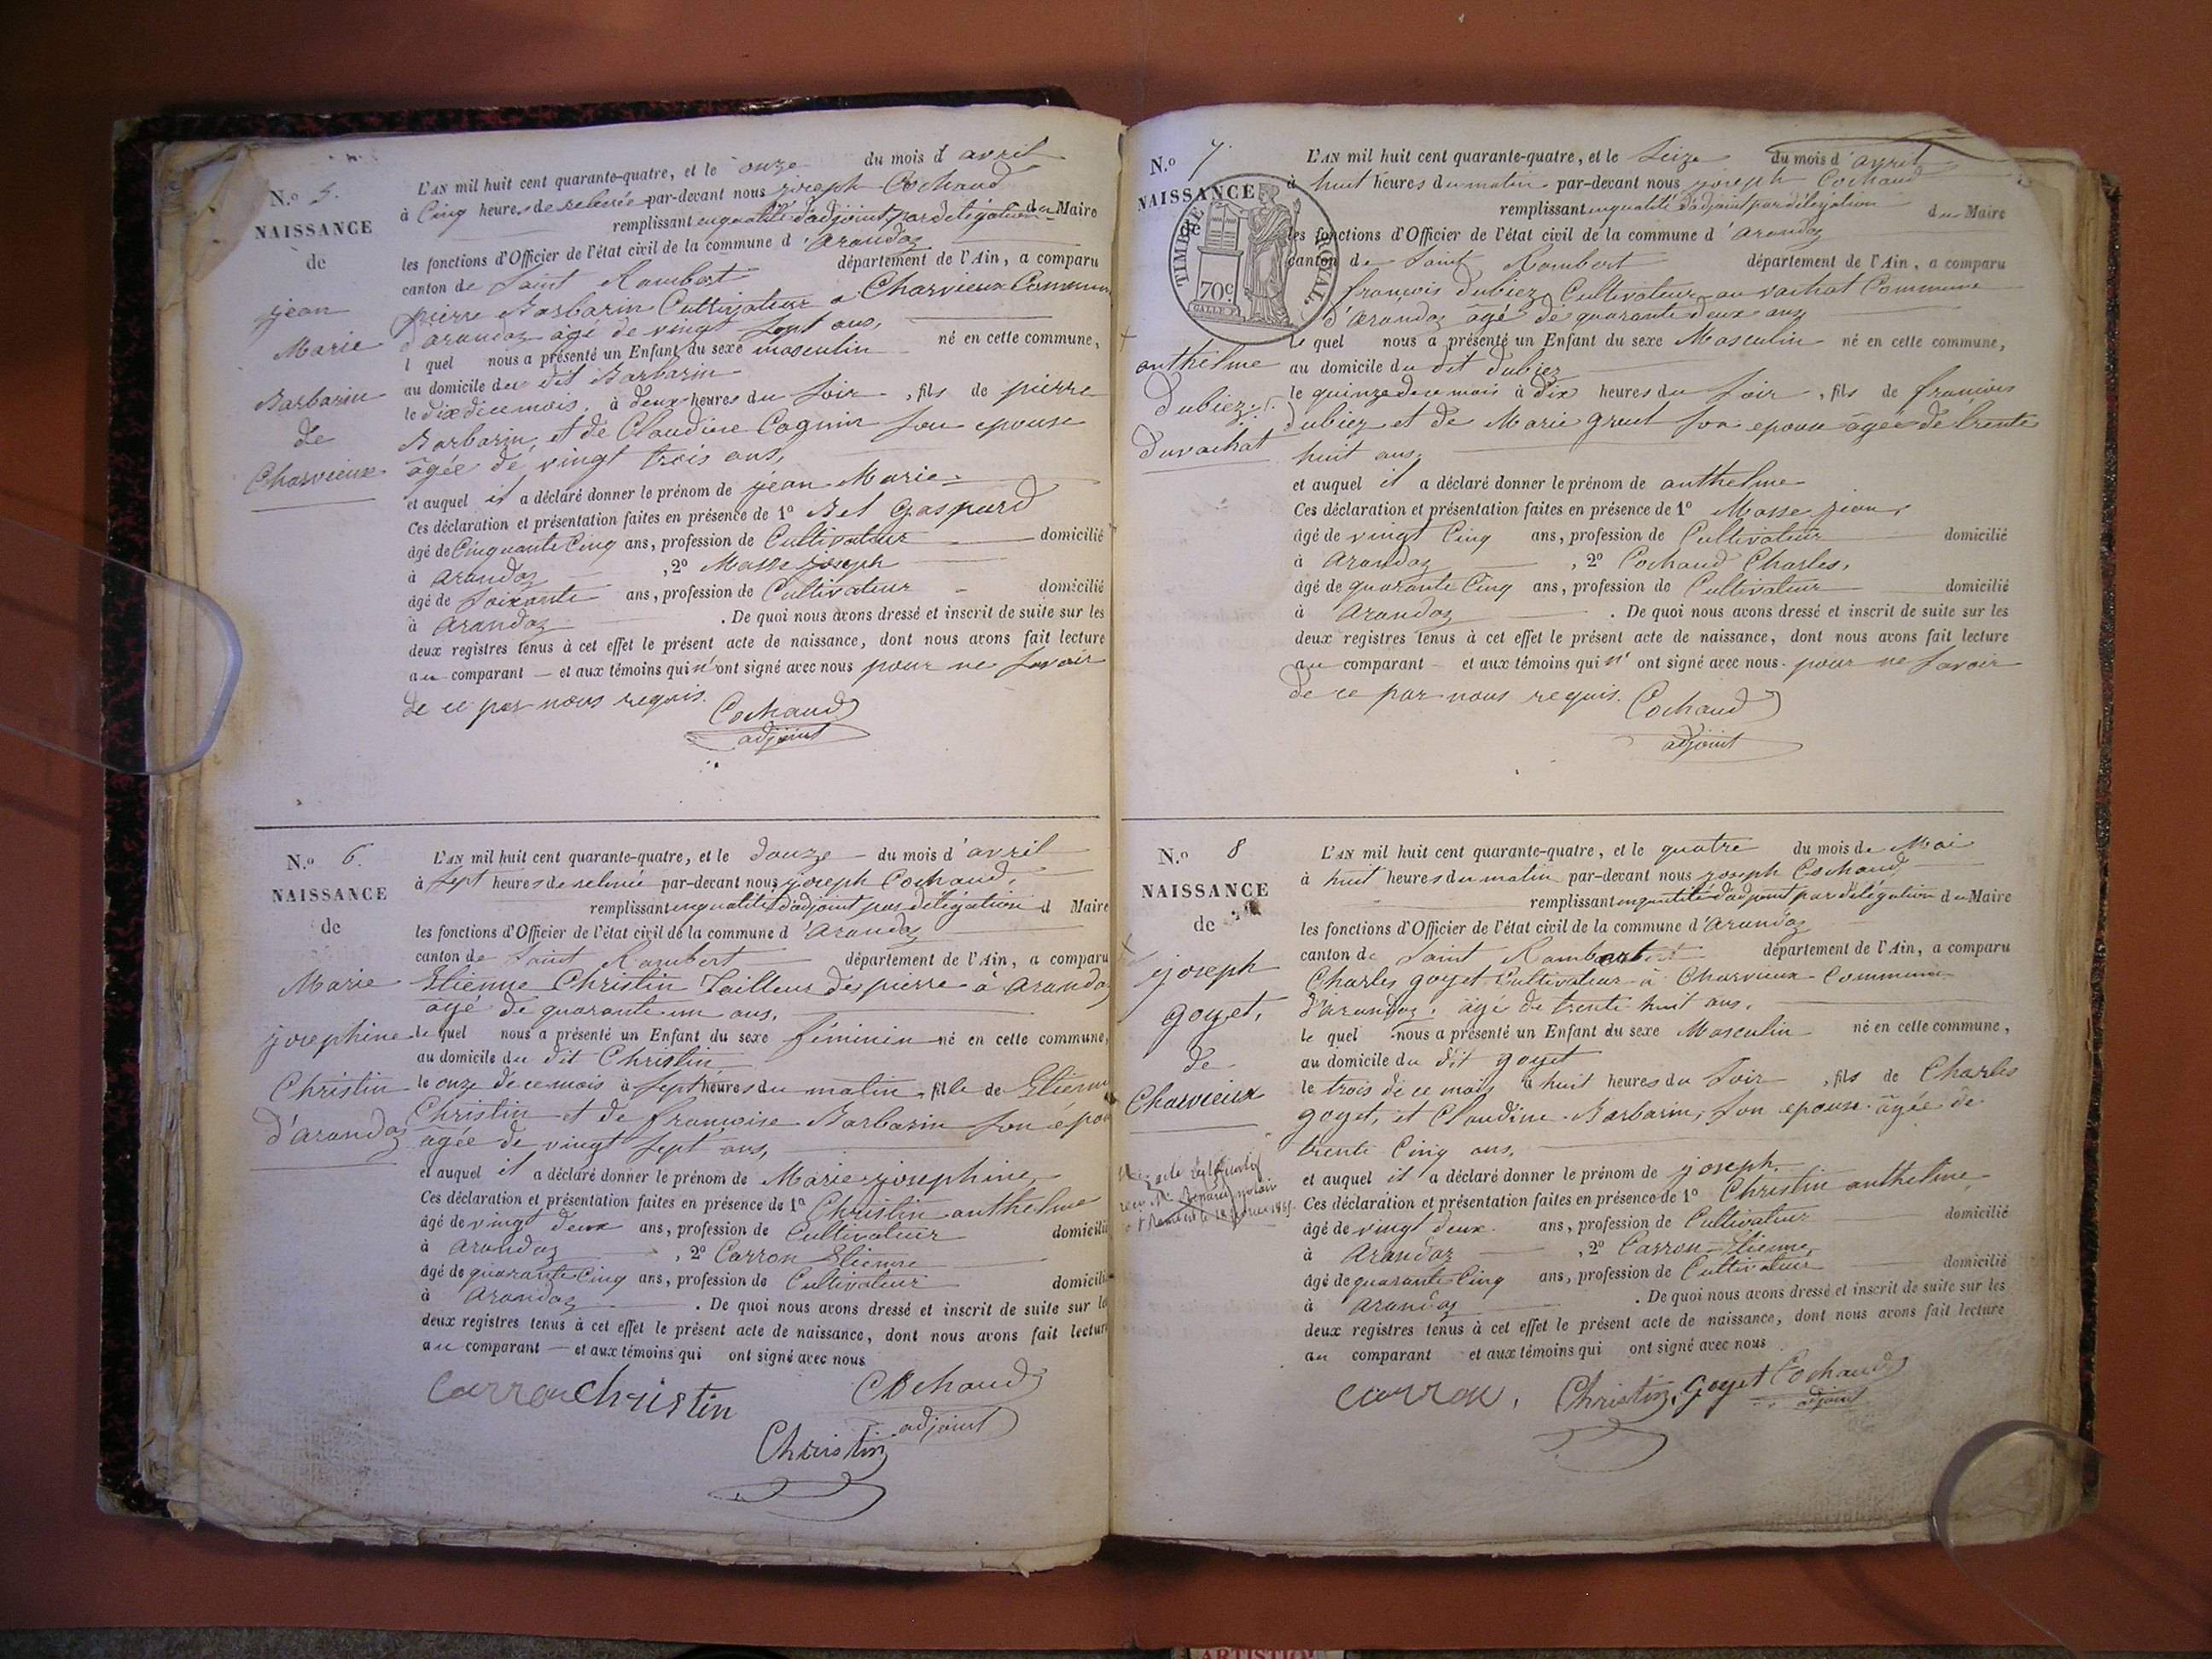 N.o 5.
NAISSANCE
de
jean
Marie
Barbarin
de
Charvieux
L'AN mil huit cent quarante-quatre, et le onze du mois d'avril
à Cinq heures de relevée par-devant nous joseph Cochaud
remplissant en qualité d'adjoint par délégation du Maire
les fonctions d'Officier de l'état civil de la commune d'arandaz
canton de Saint Rambert département de l'Ain, a comparu
pierre Barbarin Cultivateur a Charvieux Commune
d'arandaz âgé de vingt Sept ans,
l quel nous a présenté un Enfant du sexe masculin né en cette commune,
au domicile du dit Barbarin
le dix dice mois, à deux heures du Soir, fils de pierre
Barbarin, et de Claudine Cagnin Son epouse
âgée de vingt trois ans,
et auquel il a déclaré donner le prénom de jéan Marie
Ces déclaration et présentation faites en présence de 1o Bel Gaspard
âgé de Cinquante Cinq ans, profession de Cultivateur domicilié
à arandaz, 2o Masse joseph
âgé de Soixante ans, profession de Cultivateur domicilié
à arandaz. De quoi nous avons dressé et inscrit de suite sur les
deux registres tenus à cet effet le présent acte de naissance, dont nous avons fait lecture
au comparant et aux témoins qui n'ont signé avec nous pour ne Savoir
de ce par nous requis.
Cochaud
adjoint
N.o 6.
NAISSANCE
de
Marie
josephine
Christin
d'arandaz
L'AN mil huit cent quarante-quatre, et le douze du mois d'avril
à Sept heures de relevée par-devant nous joseph Cochaud,
remplissant en qualité d'adjoint par délégation d Maire
les fonctions d'Officier de l'état civil de la commune d'arandaz
canton de Saint Rambert département de l'Ain, a comparu
Etienne Christin Tailleur de pierre à arandaz
âgé de quarante un ans,
le quel nous a présenté un Enfant du sexe féminin né en cette commune,
au domicile du dit Christin
le onze de ce mois à Sept heures du matin, fille de Etienne
Christin et de francoise Barbarin Son épou
âgée de vingt Sept ans,
et auquel il a déclaré donner le prénom de Marie josephine,
Ces déclaration et présentation faites en présence de 1o Christin anthelme
âgé de vingt deux ans, profession de Cultivateur domicilié
à arandaz, 2o Carron Etienne
âgé de quarante Cinq ans, profession de Cultivateur domicilié
à arandaz. De quoi nous avons dressé et inscrit de suite sur le
deux registres tenus à cet effet le présent acte de naissance, dont nous avons fait lecture
au comparant et aux témoins qui ont signé avec nous
Carron Christin Cochaud
adjoint
Christin
N.o 7.
NAISSANCE
de
TIMBRE ROYAL
70c.
anthelme
Dubiez
duvachat
L'AN mil huit cent quarante-quatre, et le Seize du mois d'avril
à huit heures du matin par-devant nous joseph Cochaud
remplissant en qualité d'adjoint par délégation du Maire
les fonctions d'Officier de l'état civil de la commune d'arandaz
canton de Saint Rambert département de l'Ain, a comparu
françois Dubiez Cultivateur au vachat Commune
d'Arandaz âgé de quarante deux ans
le quel nous a présenté un Enfant du sexe Masculin né en cette commune,
au domicile du dit dubiez
le quinze de ce mois à dix heures du Soir, fils de françois
dubiez et de Marie grust Son epouse âgée de trente
huit ans.
et auquel il a déclaré donner le prénom de anthelme
Ces déclaration et présentation faites en présence de 1o Masse jean,
âgé de vingt Cinq ans, profession de Cultivateur domicilié
à arandaz, 2o Cochaud Charles,
âgé de quarante Cinq ans, profession de Cultivateur domicilié
à arandaz. De quoi nous avons dressé et inscrit de suite sur les
deux registres tenus à cet effet le présent acte de naissance, dont nous avons fait lecture
au comparant et aux témoins qui n'ont signé avec nous pour ne Savoir
de ce par nous requis.
Cochaud
adjoint
N.o 8
NAISSANCE
de
joseph
goyet,
de
Charvieux
L'AN mil huit cent quarante-quatre, et le quatre du mois de Mai
à huit heures du matin par-devant nous joseph Cochaud
remplissant en qualité d'adjoint par délégation du Maire
les fonctions d'Officier de l'état civil de la commune d'Arandaz
canton de Saint Rambert département de l'Ain, a comparu
Charles goyet Cultivateur à Charvieux Commune
d'arandaz, âgé de trente huit ans,
le quel nous a présenté un Enfant du sexe Masculin né en cette commune,
au domicile du dit goyet
le trois de ce mois à huit heures du Soir, fils de Charles
goyet, et Claudine Barbarin, Son epouse âgée de
trente Cinq ans,
et auquel il a déclaré donner le prénom de joseph
Ces déclaration et présentation faites en présence de 1o Christin anthelme,
âgé de vingt deux ans, profession de Cultivateur domicilié
à arandaz, 2o Carron Etienne,
âgé de quarante Cinq ans, profession de Cultivateur domicilié
à arandaz. De quoi nous avons dressé et inscrit de suite sur les
deux registres tenus à cet effet le présent acte de naissance, dont nous avons fait lecture
au comparant et aux témoins qui ont signé avec nous
carron, Christin, goyet Cochaud
adjoint